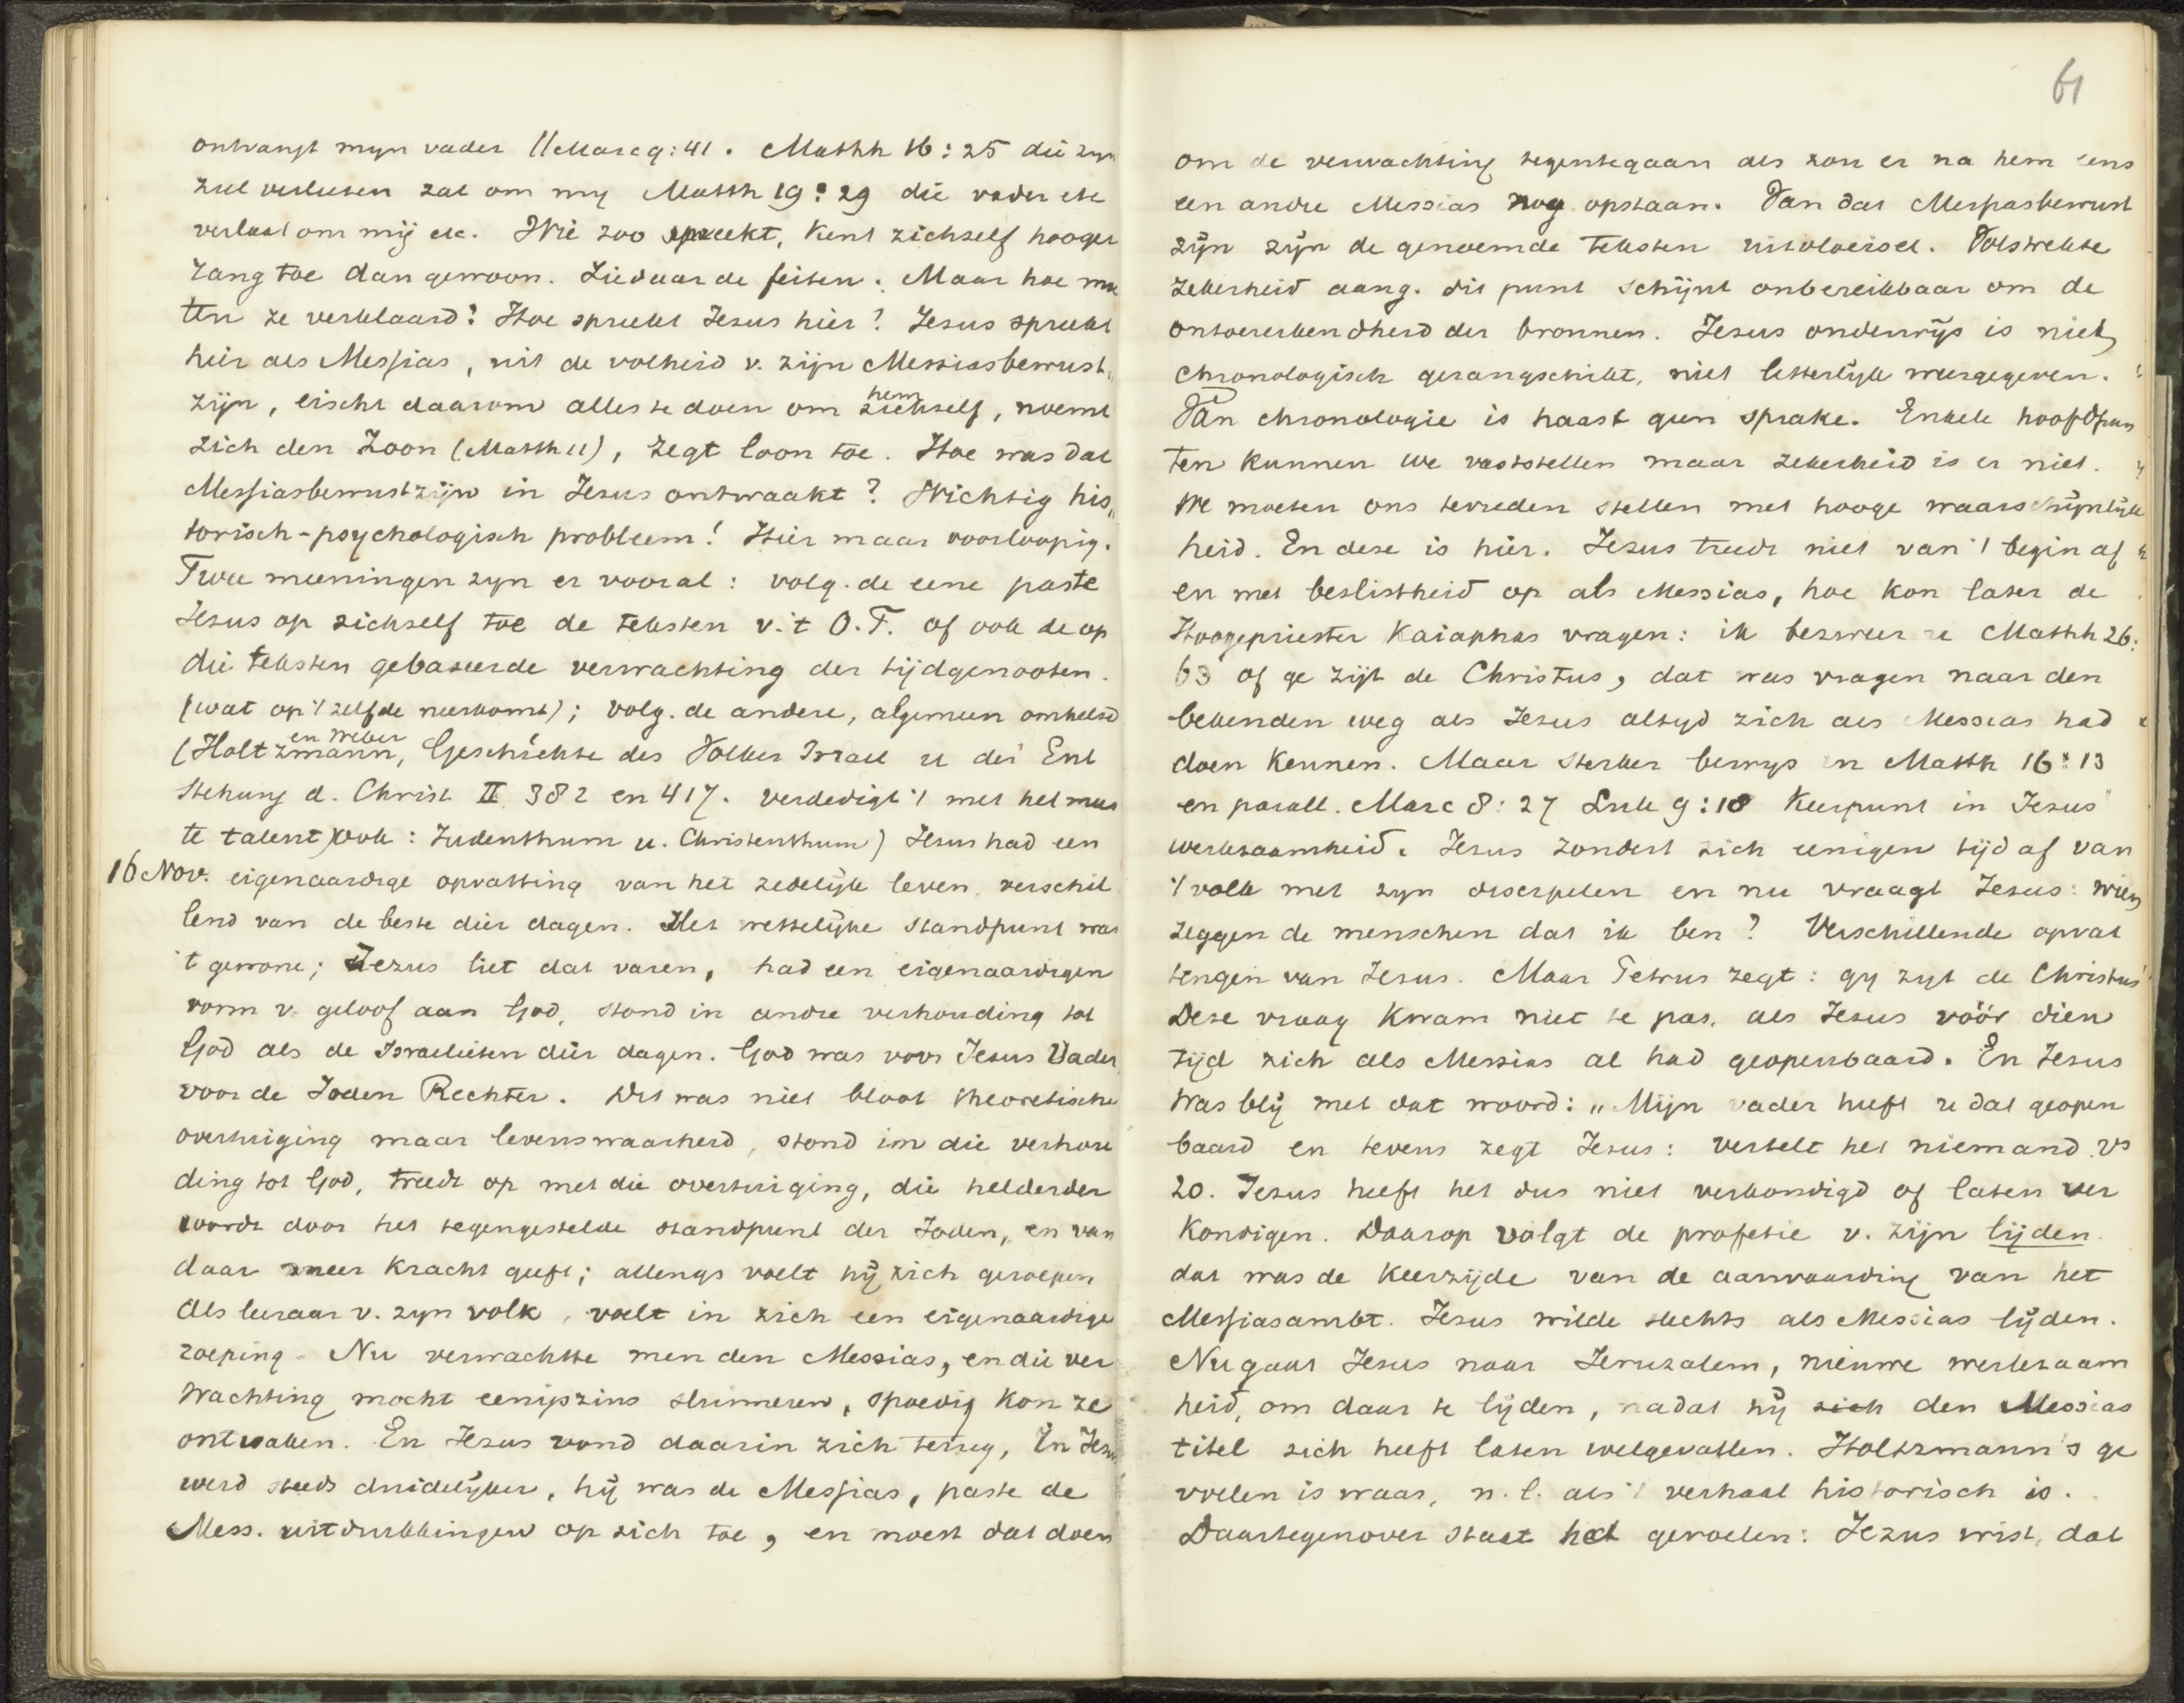 ontvangt myn vader // Marc 9:41. Matth 16:25 die zyn
ziel verliesen zal om my Matth 19:29 die vader etc
verlaat om mij etc. Wie zoo spreekt, kent zichself hooger
rang toe dan gewoon. Ziedaar de feiten. Maar hoe moe
ten ze verklaard? Hoe spreekt Jesus hier? Jesus spreekt
hier als Messias, uit de volheid v. zijn Messiasbewust„
zijn, eischt daarom alles te doen om hem zichself, noemt
zich den Zoon (Matth 11), zegt loon toe. Hoe was dat
Messiasbewustzijn in Jesus ontwaakt? Wichtig his„
torisch-psychologisch probleem! Hier maar voorloopig.
Twee meeningen zyn er vooral: volg. de eene paste
Jesus op zichself toe de teksten v. 't O.T. of ook de op
die teksten gebaseerde verwachting der tijdgenooten.
(wat op 't zelfde neerkomt); volg. de andere, algemeen omhelsd
(Holtzmann en Weber, Geschichte des Volkes Israel u der Ent
stehung d. Christ II 382 en 417. verdedigt 't met het mees
te talent) ook: Judenthum u. Christenthum) Jesus had een
16 Nov. eigenaardige opvatting van het zedelijk leven, verschil
lend van de beste dier dagen. Het wettelijke standpunt was
't gewone; Jezus liet dat varen, had een eigenaardigen
vorm v. geloof aan God, stond in andre verhouding tot
God als de Israelieten dier dagen. God was voor Jesus Vader
voor de Joden Rechter. Dit was niet bloot theoretische
overtuiging maar levenswaarheid, stond in die verhou
ding tot God, treedt op met die overtuiging, die helderder
wordt door het tegengestelde standpunt der Joden, en van
daar meer kracht geeft; allengs voelt hij zich geroepen
als leraar v. zyn volk, voelt in zich een eigenaardige
roeping. Nu verwachtte men den Messias, en die ver
wachting mocht eenigszins sluimeren, spoedig kon ze
ontwaken. En Jesus vond daarin zich terug, In Jesus
werd steeds duidelijker, hij was de Messias, paste de
Mess. uitdrukkingen op zich toe, en moest dat doen
61
om de verwachting tegentegaan als zou er na hem eens
een andre Messias nog opstaan. Van dat Messiasbewust
zijn zijn de genoemde teksten uitvloeisel. Volstrekte
zekerheid aang. dit punt schijnt onbereikbaar om de
ontoereikendheid der bronnen. Jesus onderwijs is niet
chronologisch gerangschikt, niet letterlijk weergegeven.
Van chronologie is haast geen sprake. Enkele hoofdpun
ten kunnen we vaststellen maar zekerheid is er niet.
We moeten ons tevreden stellen met hooge waarschijnlijk
heid. En deze is hier. Jezus treedt niet van 't begin af
en met beslistheid op als Messias, hoe kon later de
Hoogepriester Kaiaphas vragen: ik bezweer u Matth 26:
63 of ge zijt de Christus, dat was vragen naar den
bekenden weg als Jesus altyd zich als Messias had
doen kennen. Maar sterker bewys in Matth 16:13
en parall. Marc 8:27 Luk 9:18 Keerpunt in Jesus'
werkzaamheid. Jesus zondert zich eenigen tijd af van
't volk met zyn discipelen en nu vraagt Jesus: wien
zeggen de menschen dat ik ben? Verschillende opvat
tingen van Jesus. Maar Petrus zegt: gy zyt de Christus
Deze vraag kwam niet te pas, als Jesus vóór dien
tijd zich als Messias al had geopenbaard. En Jesus
was blij met dat woord: „Mijn vader heeft u dat geopen
baard en tevens zegt Jesus: vertelt het niemand. vs
20. Jesus heeft het dus niet verkondigd of laten ver
kondigen. Daarop volgt de profetie v. zijn lijden.
dat was de keerzijde van de aanvaarding van het
Messiasambt. Jesus wilde slechts als Messias lijden.
Nu gaat Jesus naar Jeruzalem, nieuwe werkzaam
heid, om daar te lijden, nadat hij zich den Messias
titel zich heeft laten welgevallen. Holtzmann's ge
voelen is waar, n.l. als 't verhaal historisch is.
Daartegenover staat het gevoelen: Jezus wist, dat